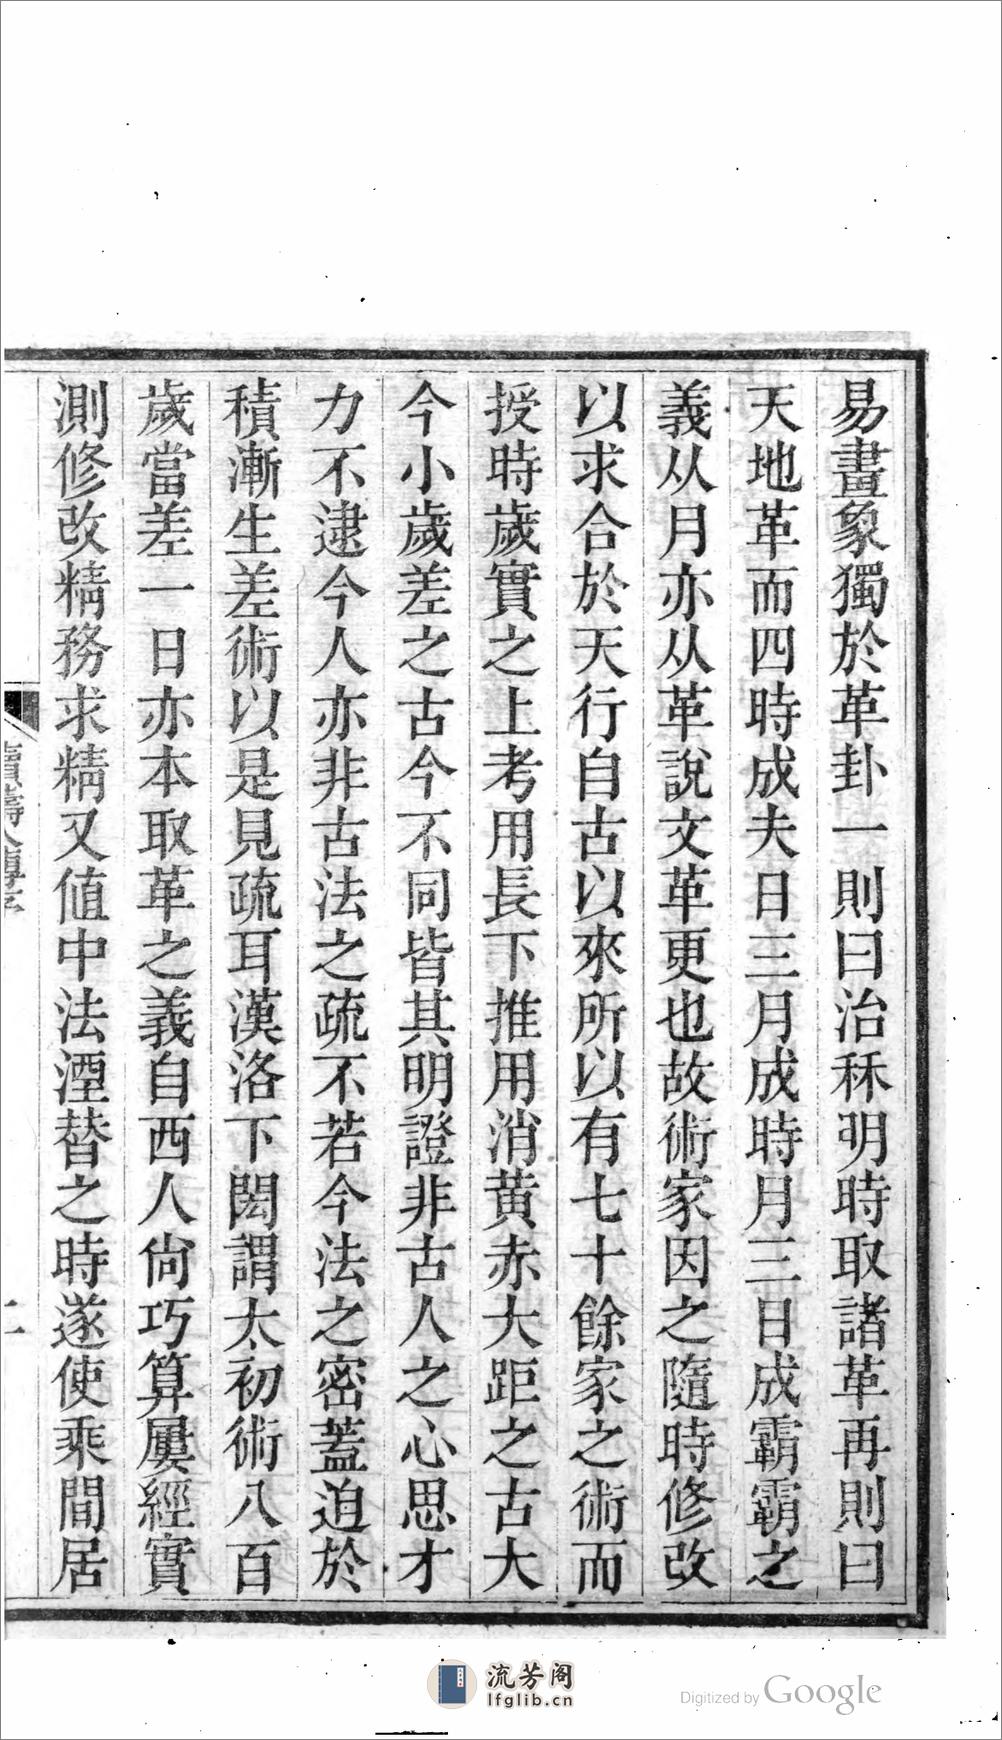 易畫象獨於革卦一則曰治秝明時取諸革再則曰
天地革而四時成夫日三月成時月三日成霸霸之
義从月亦从革說文革更也故術家因之隨時修改
以求合於天行自古以來所以有七十餘家之術而
授時歲實之上考用長下推用消黄赤大距之古大
今小歲差之古今不同皆其明證非古人之心思才
力不逮今人亦非古法之疏不若今法之密蓋迫於
積漸生差術以是見疏耳漢洛下閎謂太初術八百
歲當差一日亦本取革之義自西人尙巧算屢經實
測修改精務求精又値中法湮替之時遂使乘間居
續疇人傳序
二
流芳阁
lfglib.cn
Digitized by Google